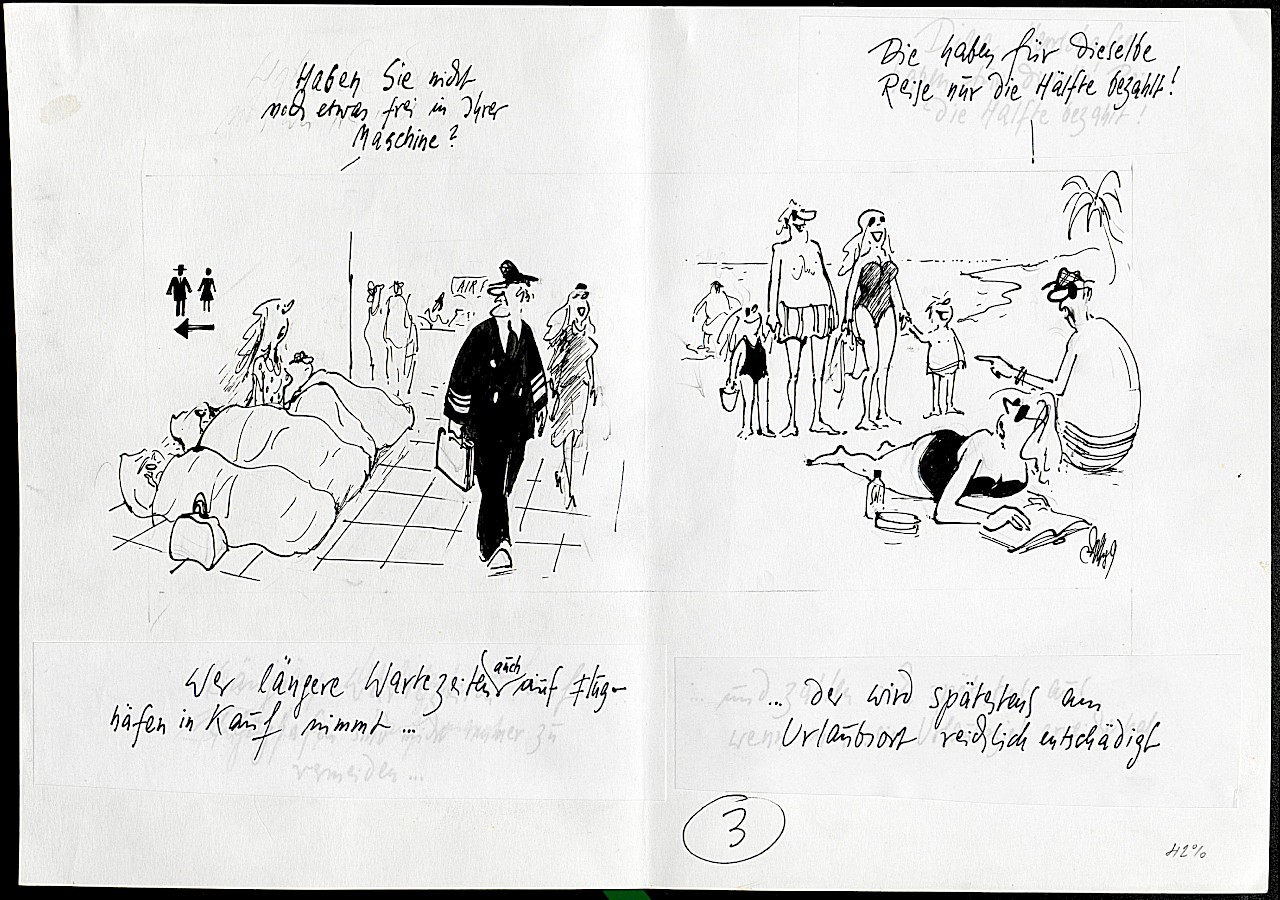 Haben Sie nicht
noch etwas frei in Ihrer
Maschine?
AIR
Wer längere Wartezeiten auch auf Flug-
häfen in Kauf nimmt ...
Die haben für dieselbe
Reise nur die Hälfte bezahlt!
die Hälfte bezahlt!
... der wird spätestens am
Urlaubsort reichlich entschädigt
vermeiden ...
3
42%